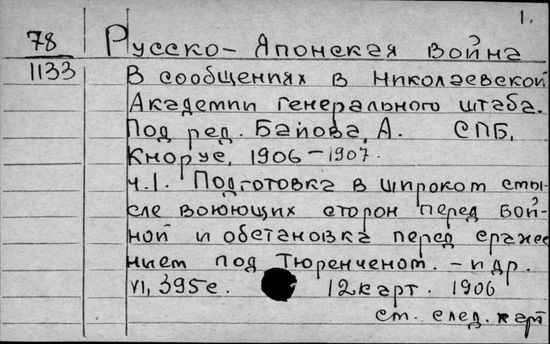 1.
78 Русско-Японская война
1133 В сообщениях в Николаевской
Академии генерального штаба.
Под ред. Баиова, А. СПБ,
Кнорус, 1906-1907.
ч.1. Подготовка в широком смы-
сле воюющих сторон перед вой-
ной и обстановка перед сраже-
нием под Тюренченом. - и др.
VI, 395с. 12 карт. 1906
см. след. карт